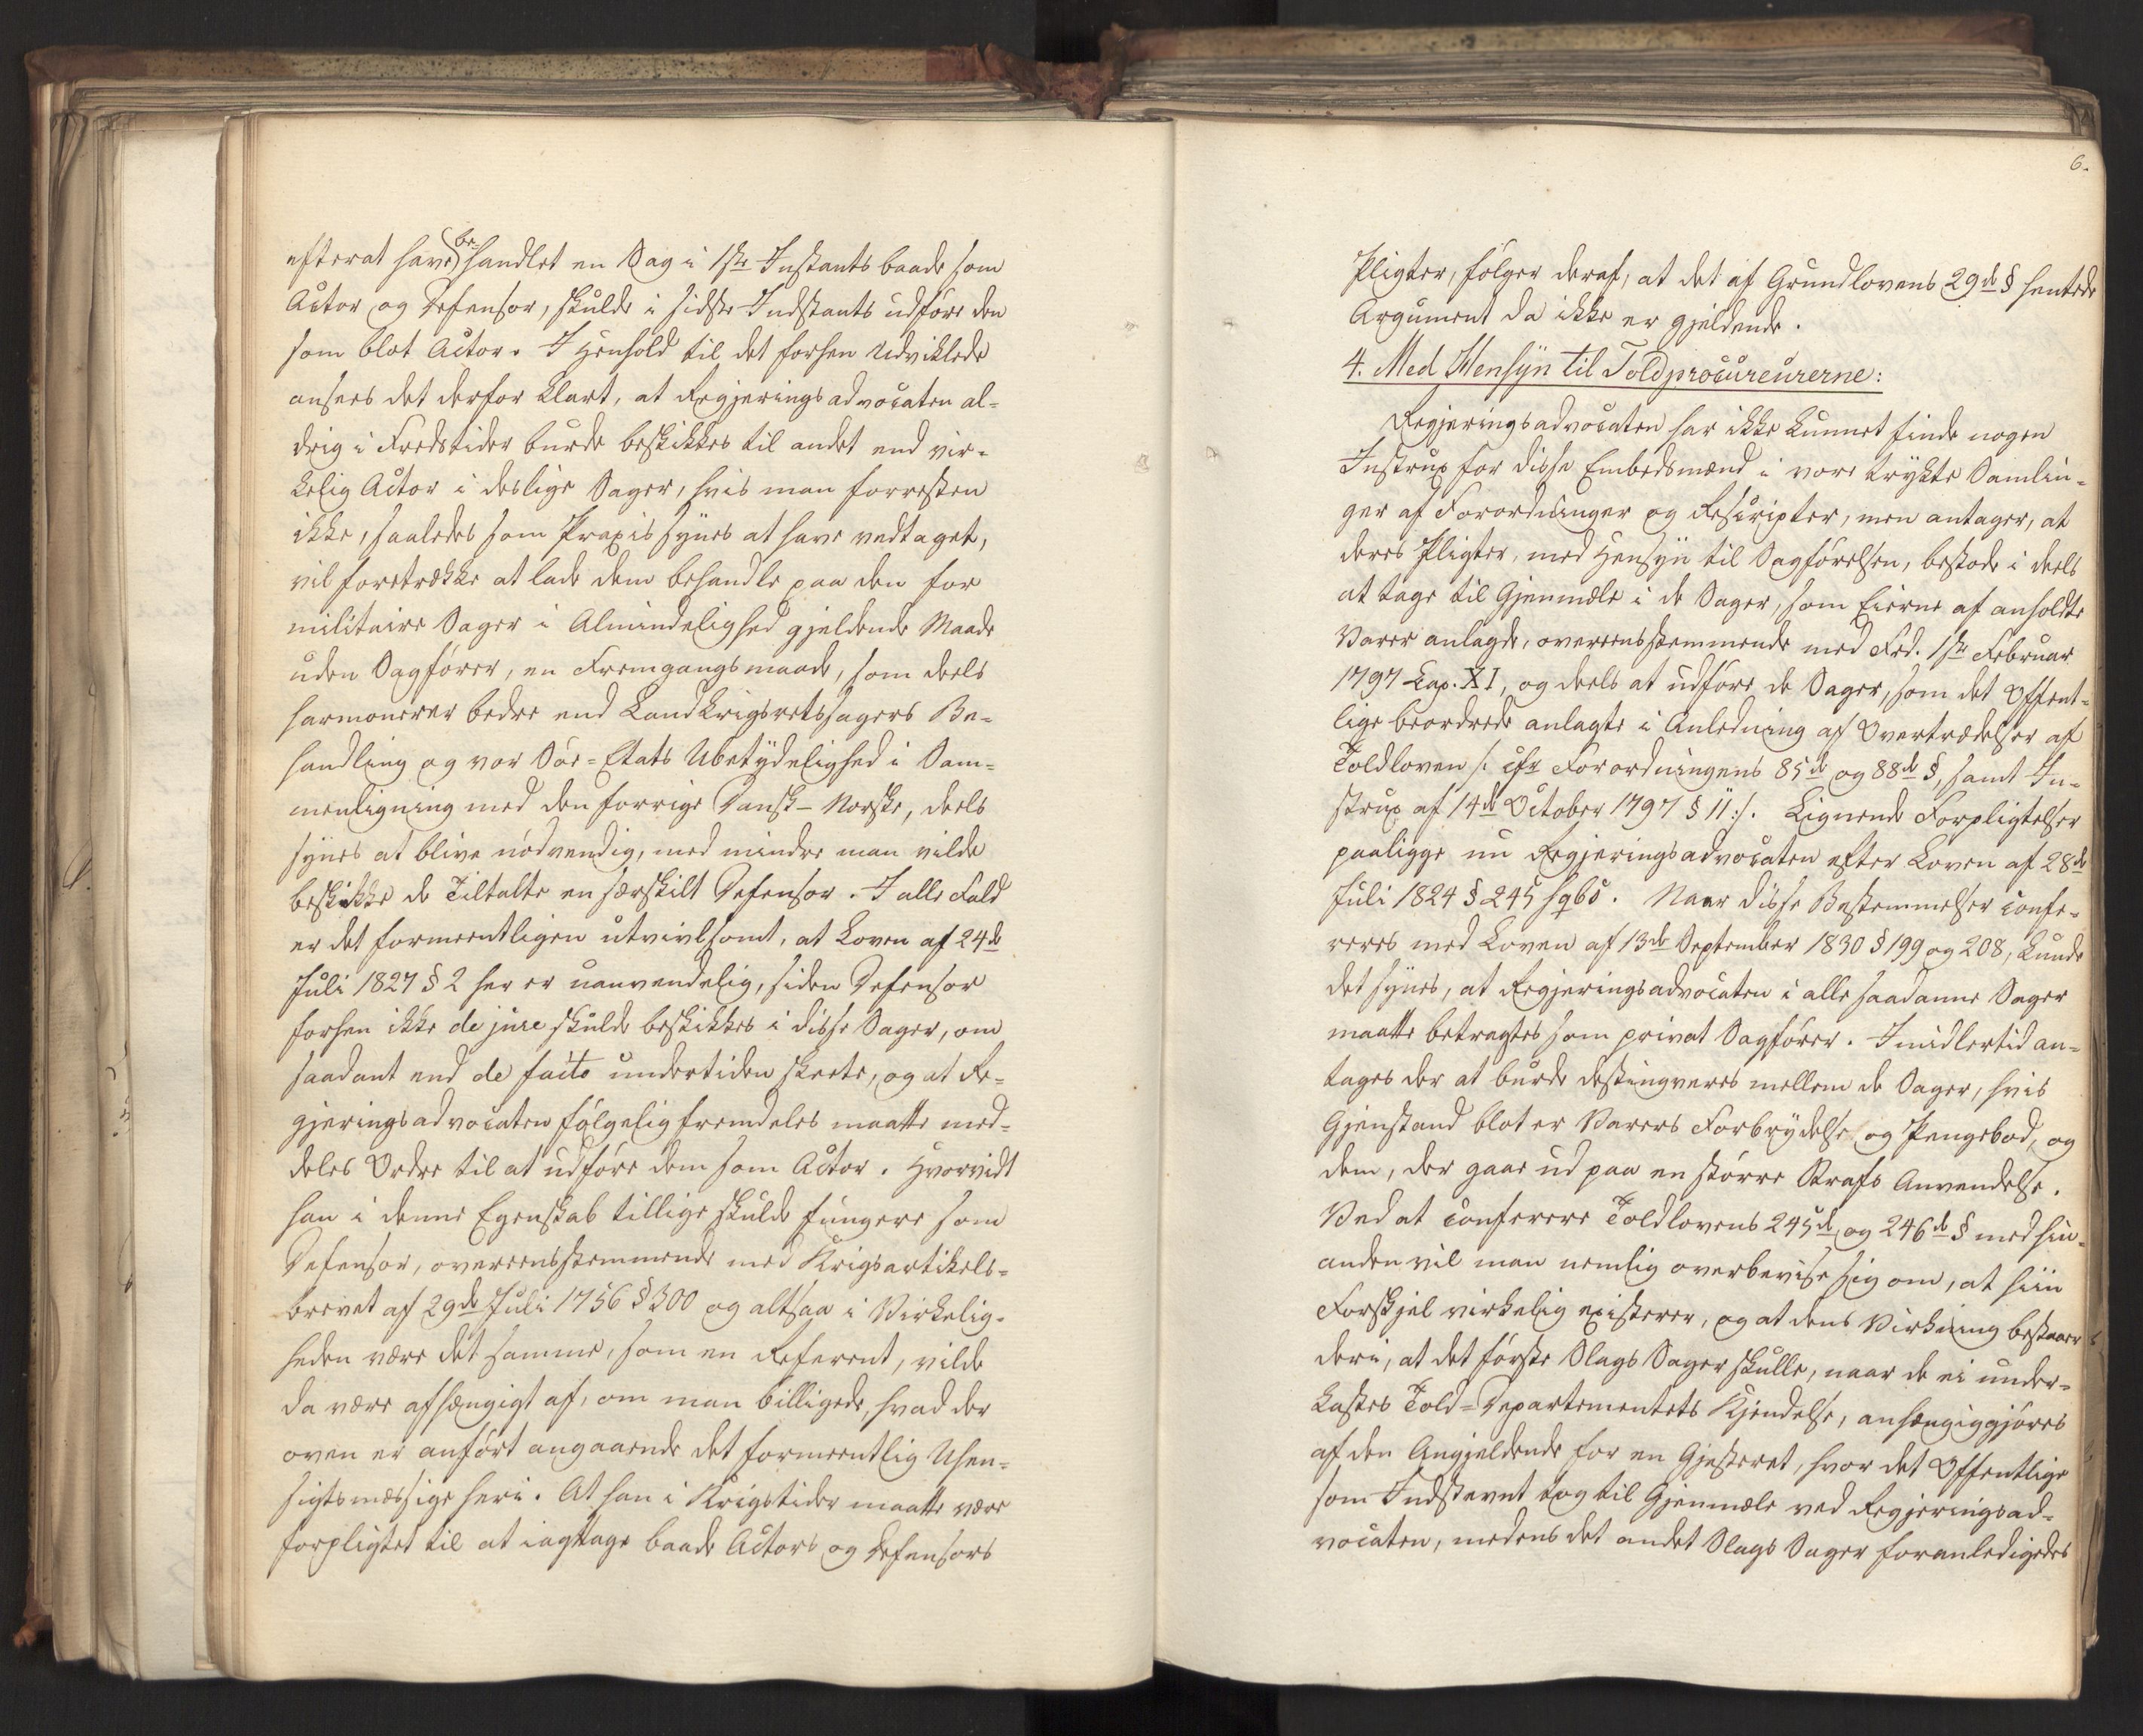 efterat have be-handlet en Sag i 1ste Instants baade som
Actor og Defensor, skulde i sidste Indstants udføre den
som blot Actor. I Henhold til det forhen Udviklede
ansees det derfor klart, at Regjeringsadvocaten al-
drig i Fredstider burde beskikkes til andet end vir-
kelig Actor i deslige Sager, hvis man forresten
ikke, saaledes som Praxis synes at have vedtaget,
vil foretrække at lade dem behandle paa den for
militaire Sager i Almindelighed gjeldende Maade
uden Sagfører, en Fremgangsmaade, som deels
harmonerer bedre end Landkrigsretssagers Be-
handling og vor Søe-Etats Ubetydelighed i Sam-
menligning med den forrige Dansk-Norske, deels
synes at blive nødvendig, med mindre man vilde
beskikke de Tiltalte en særskilt Defensor. I alle Fald
er det formeentligen utvivlsomt, at Loven af 24de
Juli 1827 § 2 her er uanvendelig, siden Defensor
forhen ikke de jure skulde beskikkes i disse Sager, om
saadant end de facto undertiden skeete, og at Re-
gjeringsadvocaten følgelig fremdeles maatte med-
deles Ordre til at udføre dem som Actor. Hvorvidt
han i denne Egenskab tillige skulde fungere som
Defensor, overeensstemmende med Krigsartikels-
brevet af 29de Juli 1756 § 300 og altsaa i Virkelig-
heden være det samme, som en Referent, vilde
da være afhængigt af, om man billigede, hvad der
oven er anført angaaende det formeentlig Uhen-
sigtsmæssige heri. At han i Krigstider maatte være
forpligtet til at iagttage baade Actors og Defensors
6.
Pligter, følger deraf, at det af Grundlovens 29de § hentede
Argument da ikke er gjeldende.
4. Med Hensyn til Toldprocureurerne:
Regjeringsadvocaten har ikke kunnet finde nogen
Instrux for disse Embedsmænd i vore trykte Samlin-
ger af Forordninger og Rescripter, men antager, at
deres Pligter, med Hensyn til Sagførelsen, bestode i deels
at tage til Gjenmæle i de Sager, som Eierne af anholdte
Varer anlagde, overeensstemmende med Frd. 1ste Februar
1797 Cap. XI, og deels at udføre de Sager, som det Offent-
lige beordrede anlagte i Anledning af Overtrædelser af
Toldloven /: cfr Forordningens 85de og 88de §, samt In-
strux af 14de October 1797 § 11:/. Lignende Forpligtelser
paaligge nu Regjeringsadvocaten efter Loven af 28de
Juli 1824 § 245 sqbs. Naar disse Bestemmelser confe-
reres med Loven af 13de September 1830 § 199 og 208, kunde
det synes, at Regjeringsadvocaten i alle saadanne Sager
maatte betragtes som privat Sagfører. Imidlertid an-
tages der at burde destingveres mellem de Sager, hvis
Gjenstand blot er Varers Forbrydelse og Pengebod, og
dem, der gaae ud paa en større Strafs Anvendelse.
Ved at conferere Toldlovens 245de og 246de § med hin-
anden vil man nemlig overbevise sig om, at hiin
Forskjel virkelig existerer, og at dens Virkning bestaaer
deri, at det første Slags Sager skulle, naar de ei under-
kastes Told-Departementets Kjendelse, anhængiggjøres
af den Angjeldende for en Gjesteret, hvor det Offentlige
som Indstevnt tog til Gjenmæle ved Regjeringsad-
vocaten, medens det andet Slags Sager foranledigedes